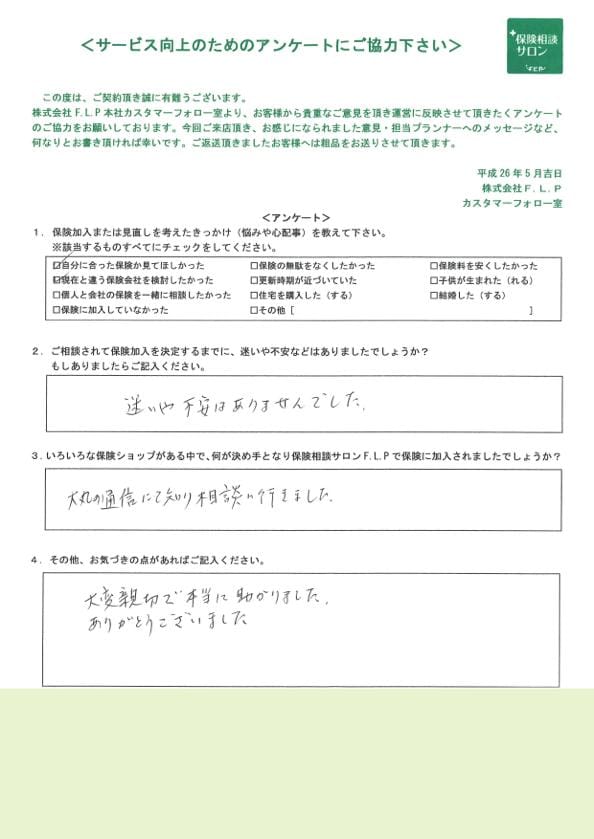 ＜サービス向上のためのアンケートにご協力下さい＞
保険相談
サロン
この度は、ご契約頂き誠に有難うございます。
株式会社F.L.P本社カスタマーフォロー室より、お客様から貴重なご意見を頂き運営に反映させて頂きたくアンケート
のご協力をお願いしております。今回ご来店頂き、お感じになられました意見・担当プランナーへのメッセージなど、
何なりとお書き頂ければ幸いです。ご返送頂きましたお客様へは粗品をお送りさせて頂きます。
平成26年5月吉日
株式会社F.L.P
カスタマーフォロー室
＜アンケート＞
1．保険加入または見直しを考えたきっかけ（悩みや心配事）を教えて下さい。
※該当するものすべてにチェックをしてください。
☑自分に合った保険か見てほしかった □保険の無駄をなくしたかった □保険料を安くしたかった
☑現在と違う保険会社を検討したかった □更新時期が近づいていた □子供が生まれた（れる）
□個人と会社の保険を一緒に相談したかった □住宅を購入した（する） □結婚した（する）
□保険に加入していなかった □その他［ ］
2．ご相談されて保険加入を決定するまでに、迷いや不安などはありましたでしょうか？
もしありましたらご記入ください。
迷いや不安はありませんでした。
3．いろいろな保険ショップがある中で、何が決め手となり保険相談サロンF.L.Pで保険に加入されましたでしょうか？
大丸の通信にて知り相談に行きました。
4．その他、お気づきの点があればご記入ください。
大変親切で本当に助かりました。
ありがとうございました